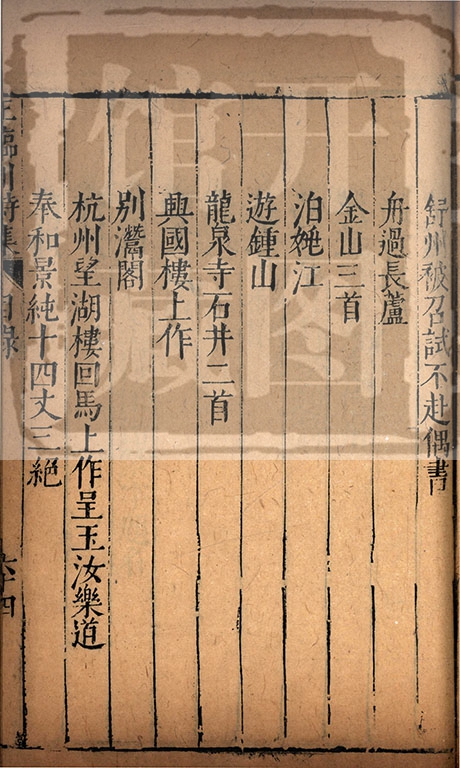 舒州被召試不赴偶書
舟過長蘆
金山三首
泊姚江
遊鍾山
龍泉寺石井二首
興國樓上作
別灊閣
杭州望湖樓回馬上作呈玉汝樂道
奉和景純十四丈三絕
王臨川詩集 目錄 六十四